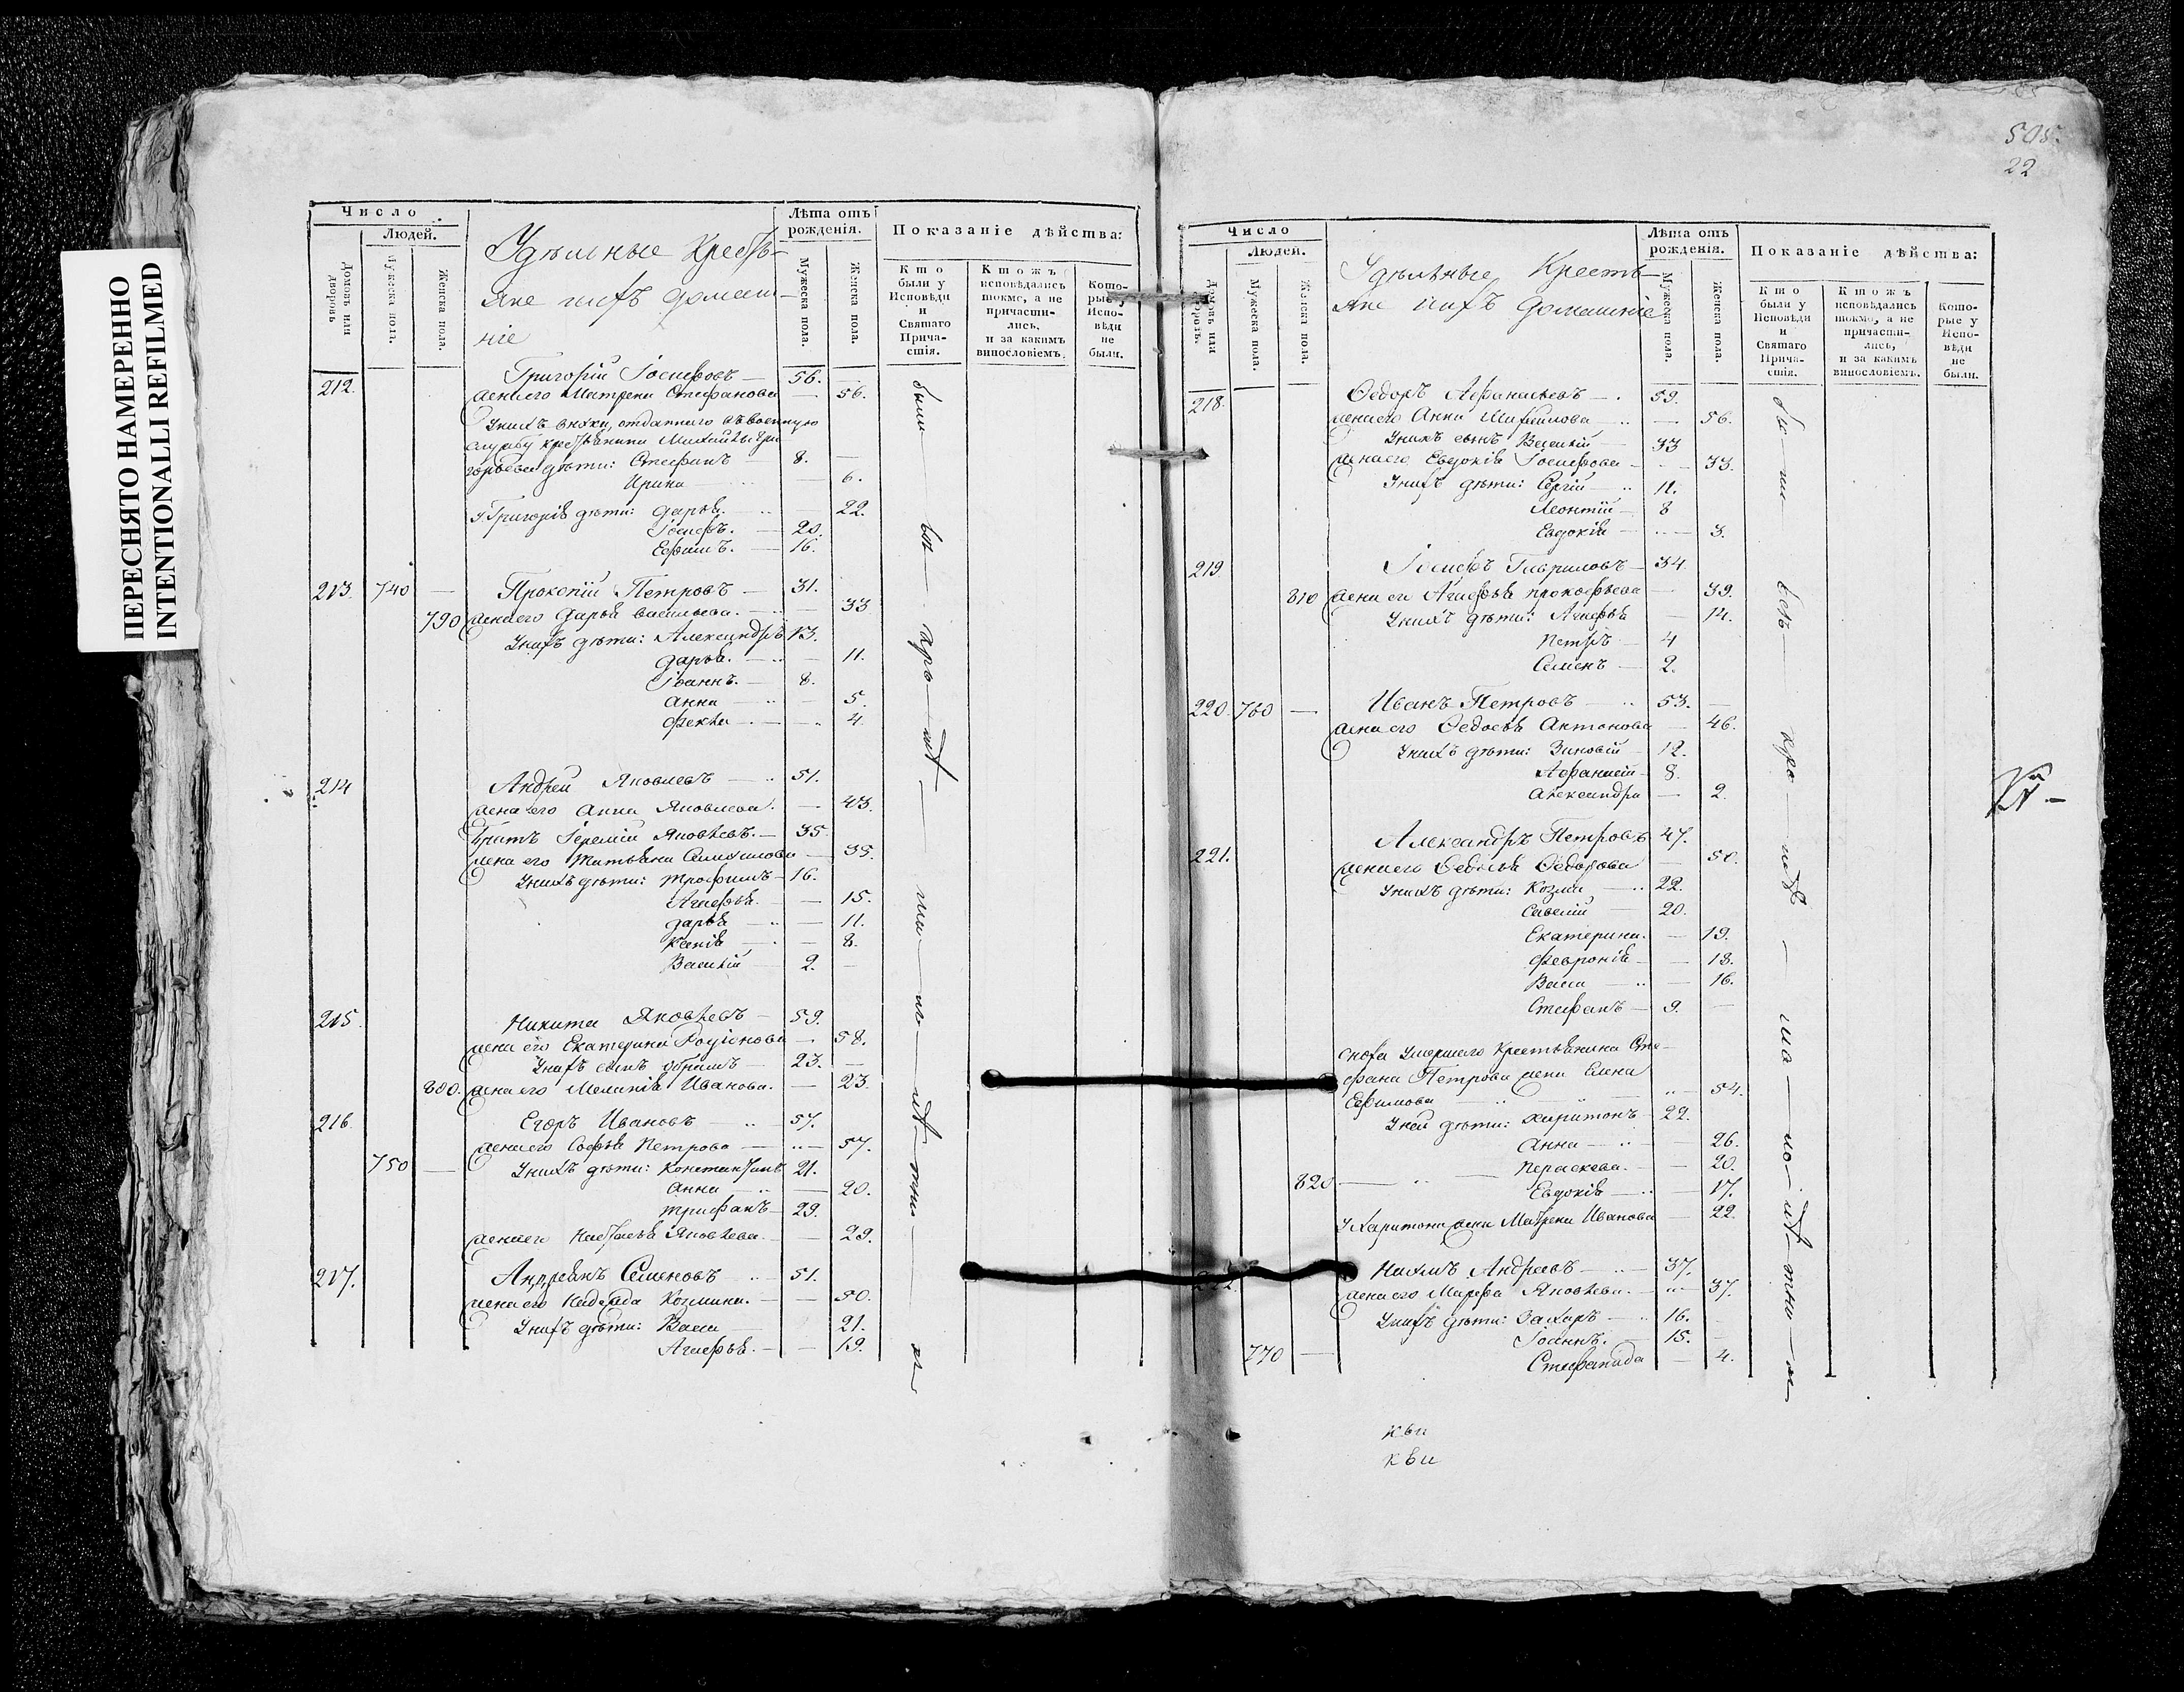 ПЕРЕСНЯТО НАМЕРЕННО
INTENTIONALLI REFILMED
Число
Людей.
Домовъ или дворовъ
Мужеска полъ.
Женска пола.
Удѣльные Крестья-
не и ихъ домаш-
ніе
Лѣта отъ рожденія.
Мужеска пола.
Женска пола.
Показаніе дѣйства:
Кто были у Исповѣди и Святаго Причастія.
Ктожъ исповѣдались токмо, а не причастились, и за какимъ винословіемъ.
Которые у Исповѣди не были.
212. Григорій Іосифовъ — 56.
жена его Матрена Стефанова — 56.
У нихъ внуки, отданнаго въ военную
службу крестьянина Михайлы Гри
горьева дѣти: Стефанъ 8. —
Ирина — 6.
У Григорія дѣти: Дарья. — 22.
Іосифъ. — 20.
Ефимъ. — 16.
213. 740 — Прокопій Петровъ — 31.
790 жена его Дарья Васильева. — 33
У нихъ дѣти: Александръ 13.
Дарья. — 11.
Іоаннъ. — 8.
Анна — 5.
Фекла — 4.
214 Андрей Яковлевъ — 51.
жена его Анна Яковлева. — 43.
Братъ Іеремій Яковлевъ. — 35.
жена его Татьяна Самойлова — 35.
У нихъ дѣти: Трофимъ — 16.
Агафья. — 15.
Дарья — 11.
Ксенія — 8.
Василій — 2. —
215. Никита Яковлевъ — 59.
жена его Екатерина Родіонова — 58.
У нихъ сынъ — 23. —
800. жена его Меланія Иванова. — 23.
216. Егоръ Ивановъ — 57.
жена его Софья Петрова — 57.
750 — У нихъ дѣти: Константинъ 21.
Анна — 20.
Трифанъ — 29.
жена его Настасья Яковлева. — 29.
217. Андреянъ Семеновъ — 51.
жена его Надежда Козмина. — 50.
У нихъ дѣти: Васса 21.
Агафья. — 19.
505.
22
Число
Людей.
Домовъ или дворовъ.
Мужеска пола.
Женска пола.
Удѣльные Крестья
не и ихъ домашніе
Лѣта отъ рожденія.
Мужеска пола.
Женска пола.
Показаніе дѣйства:
Кто были у Исповѣди и Святаго Причастія.
Ктожъ исповѣдались токмо, а не причастились, и за какимъ винословіемъ.
Которые у Исповѣди не были.
218. Ѳедоръ Афанасьевъ — 59.
жена его Анна Михаилова — 56.
У нихъ сынъ Василій 33
жена его Евдокія Іосифова — 33.
У нихъ дѣти: Сергій — 11.
Леонтій — 8
Евдокія — 3.
219. Іосифъ Гавриловъ — 34
810 жена его Агафья Прокофьева — 39.
У нихъ дѣти: Агафья — 14.
Петръ — 4
Семенъ — 2.
220. 760 — Иванъ Петровъ — 53. —
жена его Ѳедосья Антонова — 46.
У нихъ дѣти: Зиновій — 12.
Афанасій — 8.
Александра — 2.
221. Александръ Петровъ 47.
жена его Ѳедосья Ѳедорова — 50.
У нихъ дѣти: Козма — 22.
Савелій — 20.
Екатерина. — 19.
Февронія — 18.
Васса — 16.
Стефанъ — 9. —
Сноха умершаго крестьянина Сте-
фана Петрова жена Елена
Ефимова — 54.
У ней дѣти: Харитонъ — 22.
Анна — 26.
Параскева. — 20.
820 — Евдокія — 17.
У Харитона жена Матрена Иванова — 22.
222. Наумъ Андреевъ — 37.
жена его Марфа Яковлева. — 37.
У нихъ дѣти: Захаръ — 16.
Іоаннъ. — 15.
770 — Стефанида — 4.